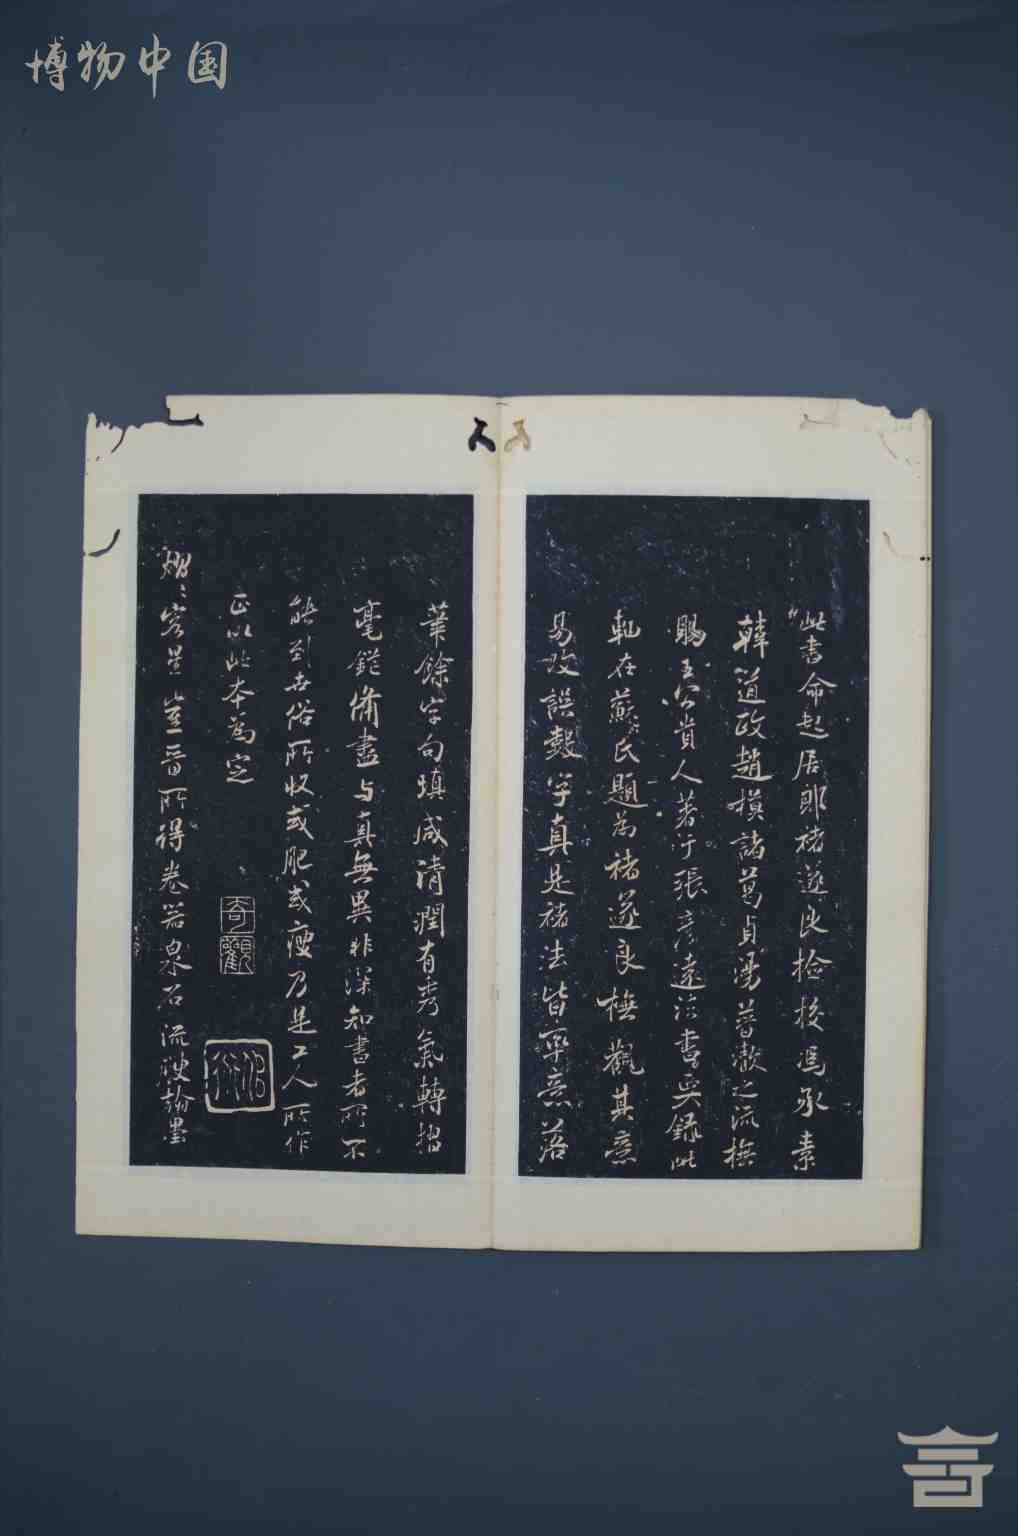 博物中国
此书命起居郎褚遂良检挍冯承素
韩道政趙摸諸葛貞湯普澈之流橅
賜王公貴人著于張彦遠法書要録此
軸在蘇氏題為褚遂良橅觀其意
易改誤數字真是褚法皆率意落
筆餘字句填咸清潤有秀氣轉摺
毫鋩備盡与真無異非深知書者所不
能到世俗所收或肥或瘦乃是工人所作
正以此本為定
奇觀
熠〻客星豈晋所得卷器泉石流腴翰墨